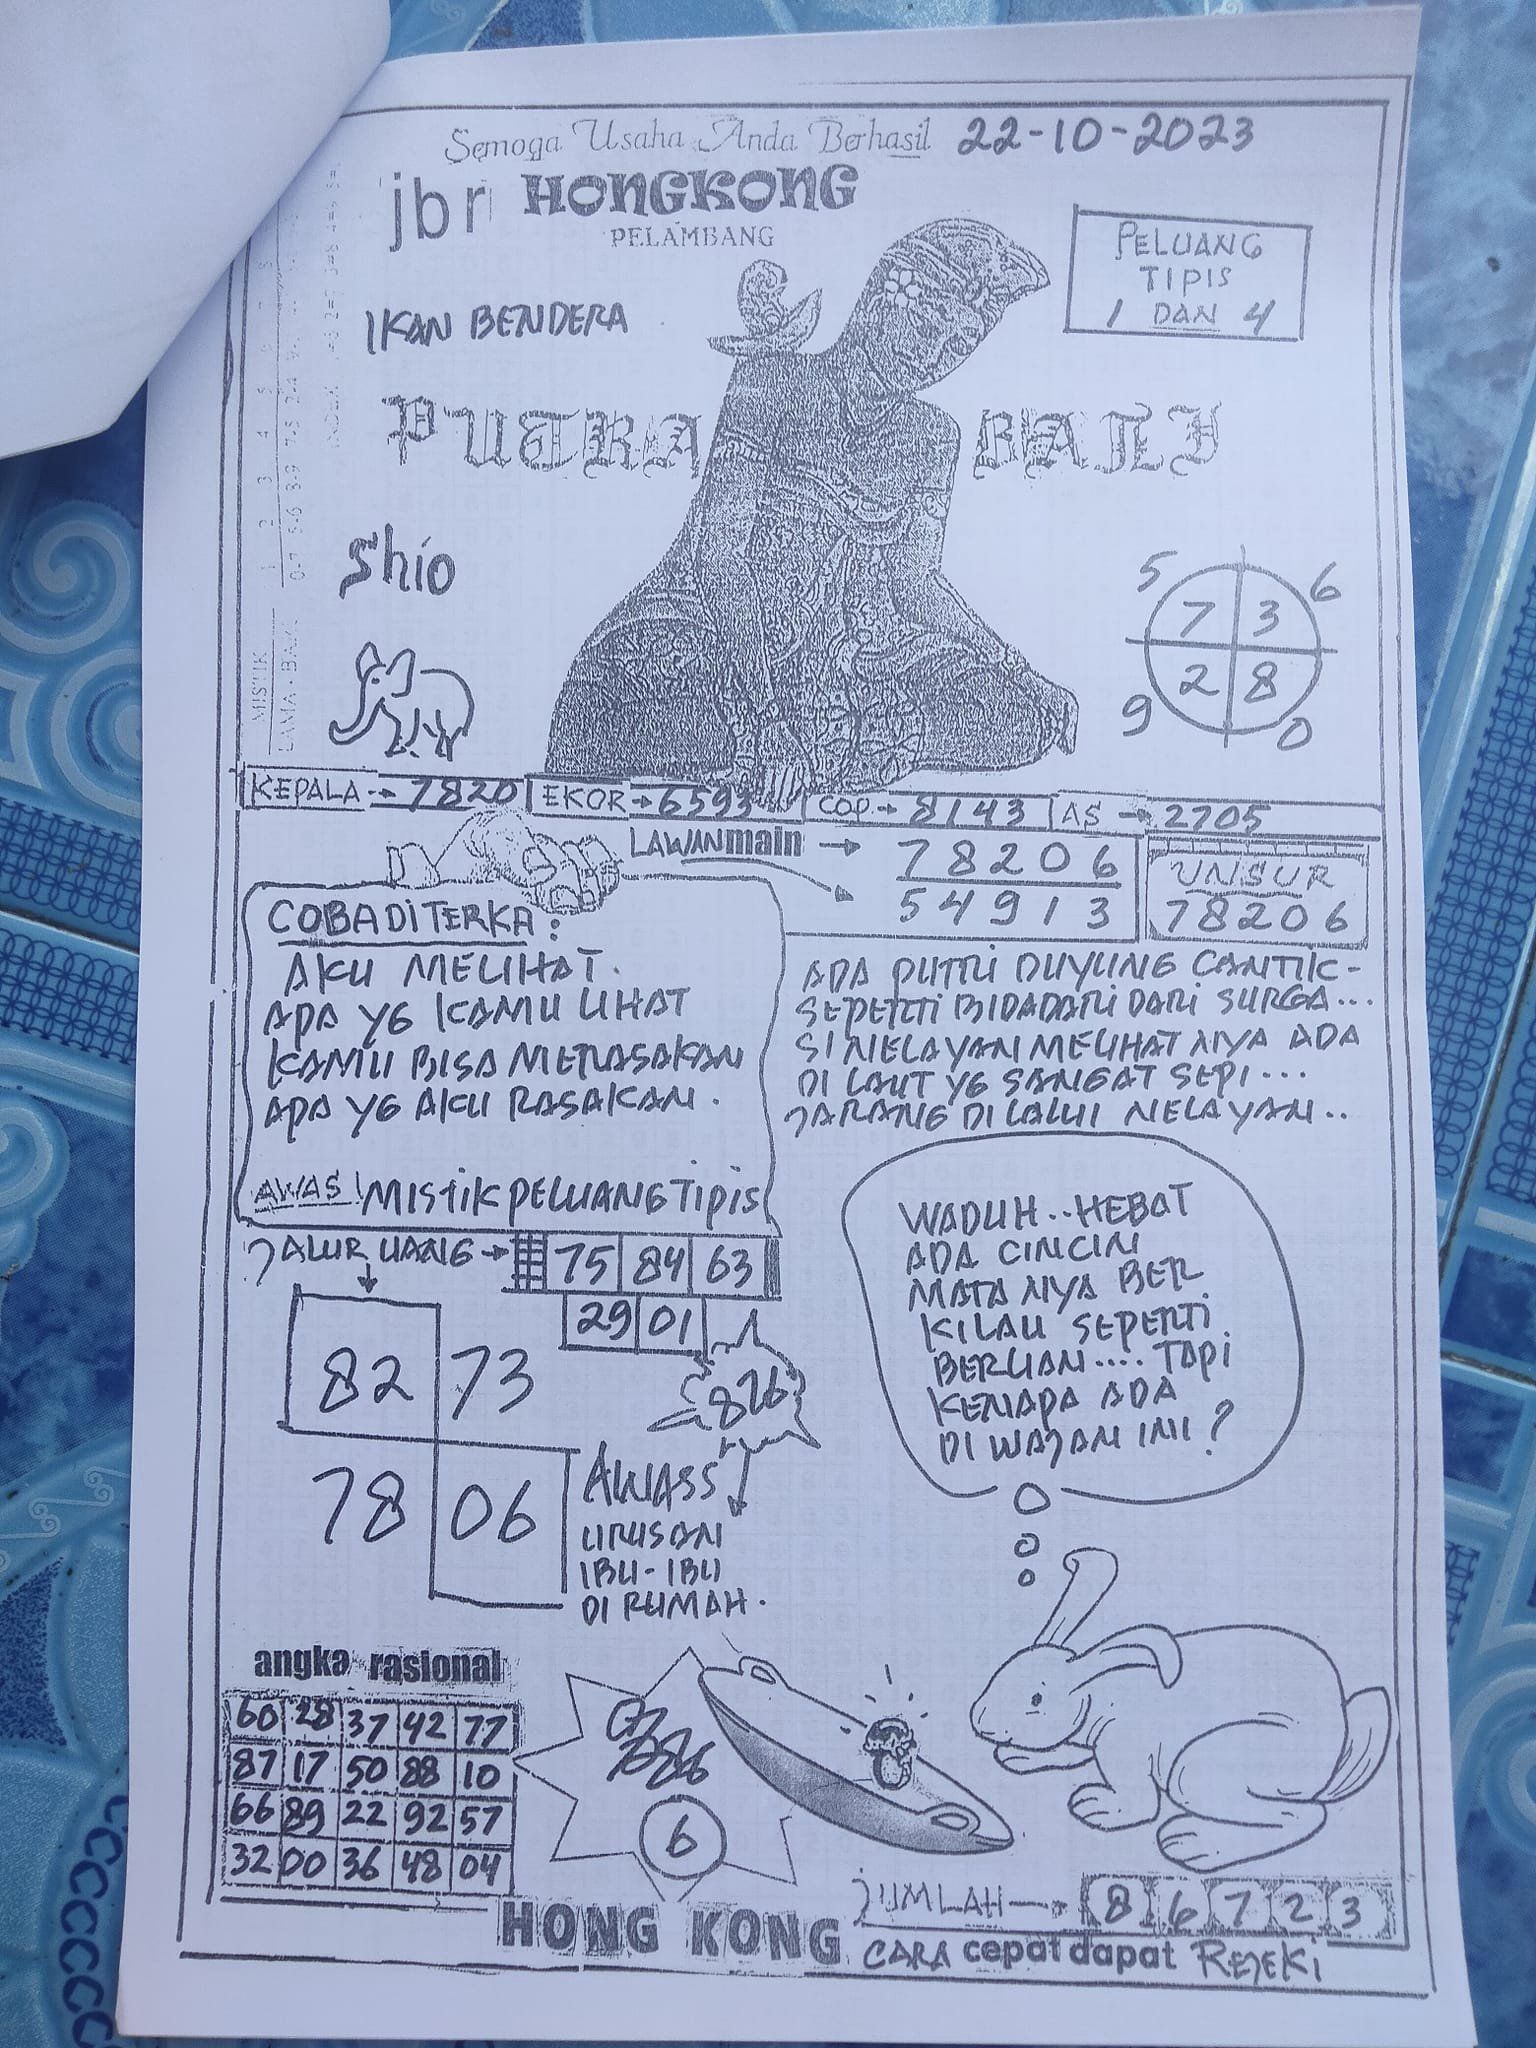 Semoga Usaha Anda Berhasil 22-10-2023
jbr HONGKONG
PELAMBANG
PELUANG
TIPIS
1 DAN 4
IKAN BENDERA
PUTRA BALI
Shio
5 6
7 3
2 8
9 0
MISTIK
LAMA - BARU
INDEX
KEPALA → 7820 EKOR → 6593 COP → 8143 AS → 2705
LAWAN main → 78206
54913
UNSUR
78206
COBA DITERKA :
AKU MELIHAT.
APA YG KAMU LIHAT
KAMU BISA MERASAKAN
APA YG AKU RASAKAN.
AWAS! MISTIK PELUANG TIPIS
ADA PUTRI DUYUNG CANTIK -
SEPERTI BIDADARI DARI SURGA...
SI NELAYAN MELIHAT NYA ADA
DI LAUT YG SANGAT SEPI...
JARANG DI LALUI NELAYAN..
JALUR UANG → 75 84 63
29 01
82 73
78 06
876
AWASS
URUSAN
IBU-IBU
DI RUMAH.
WADUH..HEBAT
ADA CINCIN
MATA NYA BER
KILAU SEPERTI
BERLIAN.... TAPI
KENAPA ADA
DI WAJAN INI?
angka rasional
60 28 37 42 77
87 17 50 88 10
66 89 22 92 57
32 00 36 48 04
6
JUMLAH → 8 6 7 2 3
HONG KONG
CARA cepat dapat REJEKI